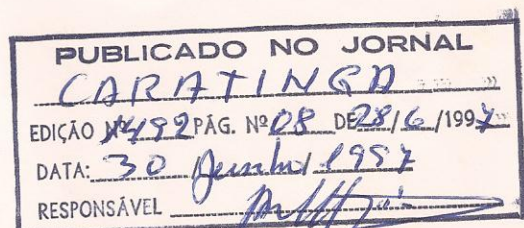 PUBLICADO NO JORNAL
CARATINGA
EDIÇÃO Nº 492 PÁG. Nº 08 DE 28/6/1997
DATA: 30 Junho/1997
RESPONSÁVEL